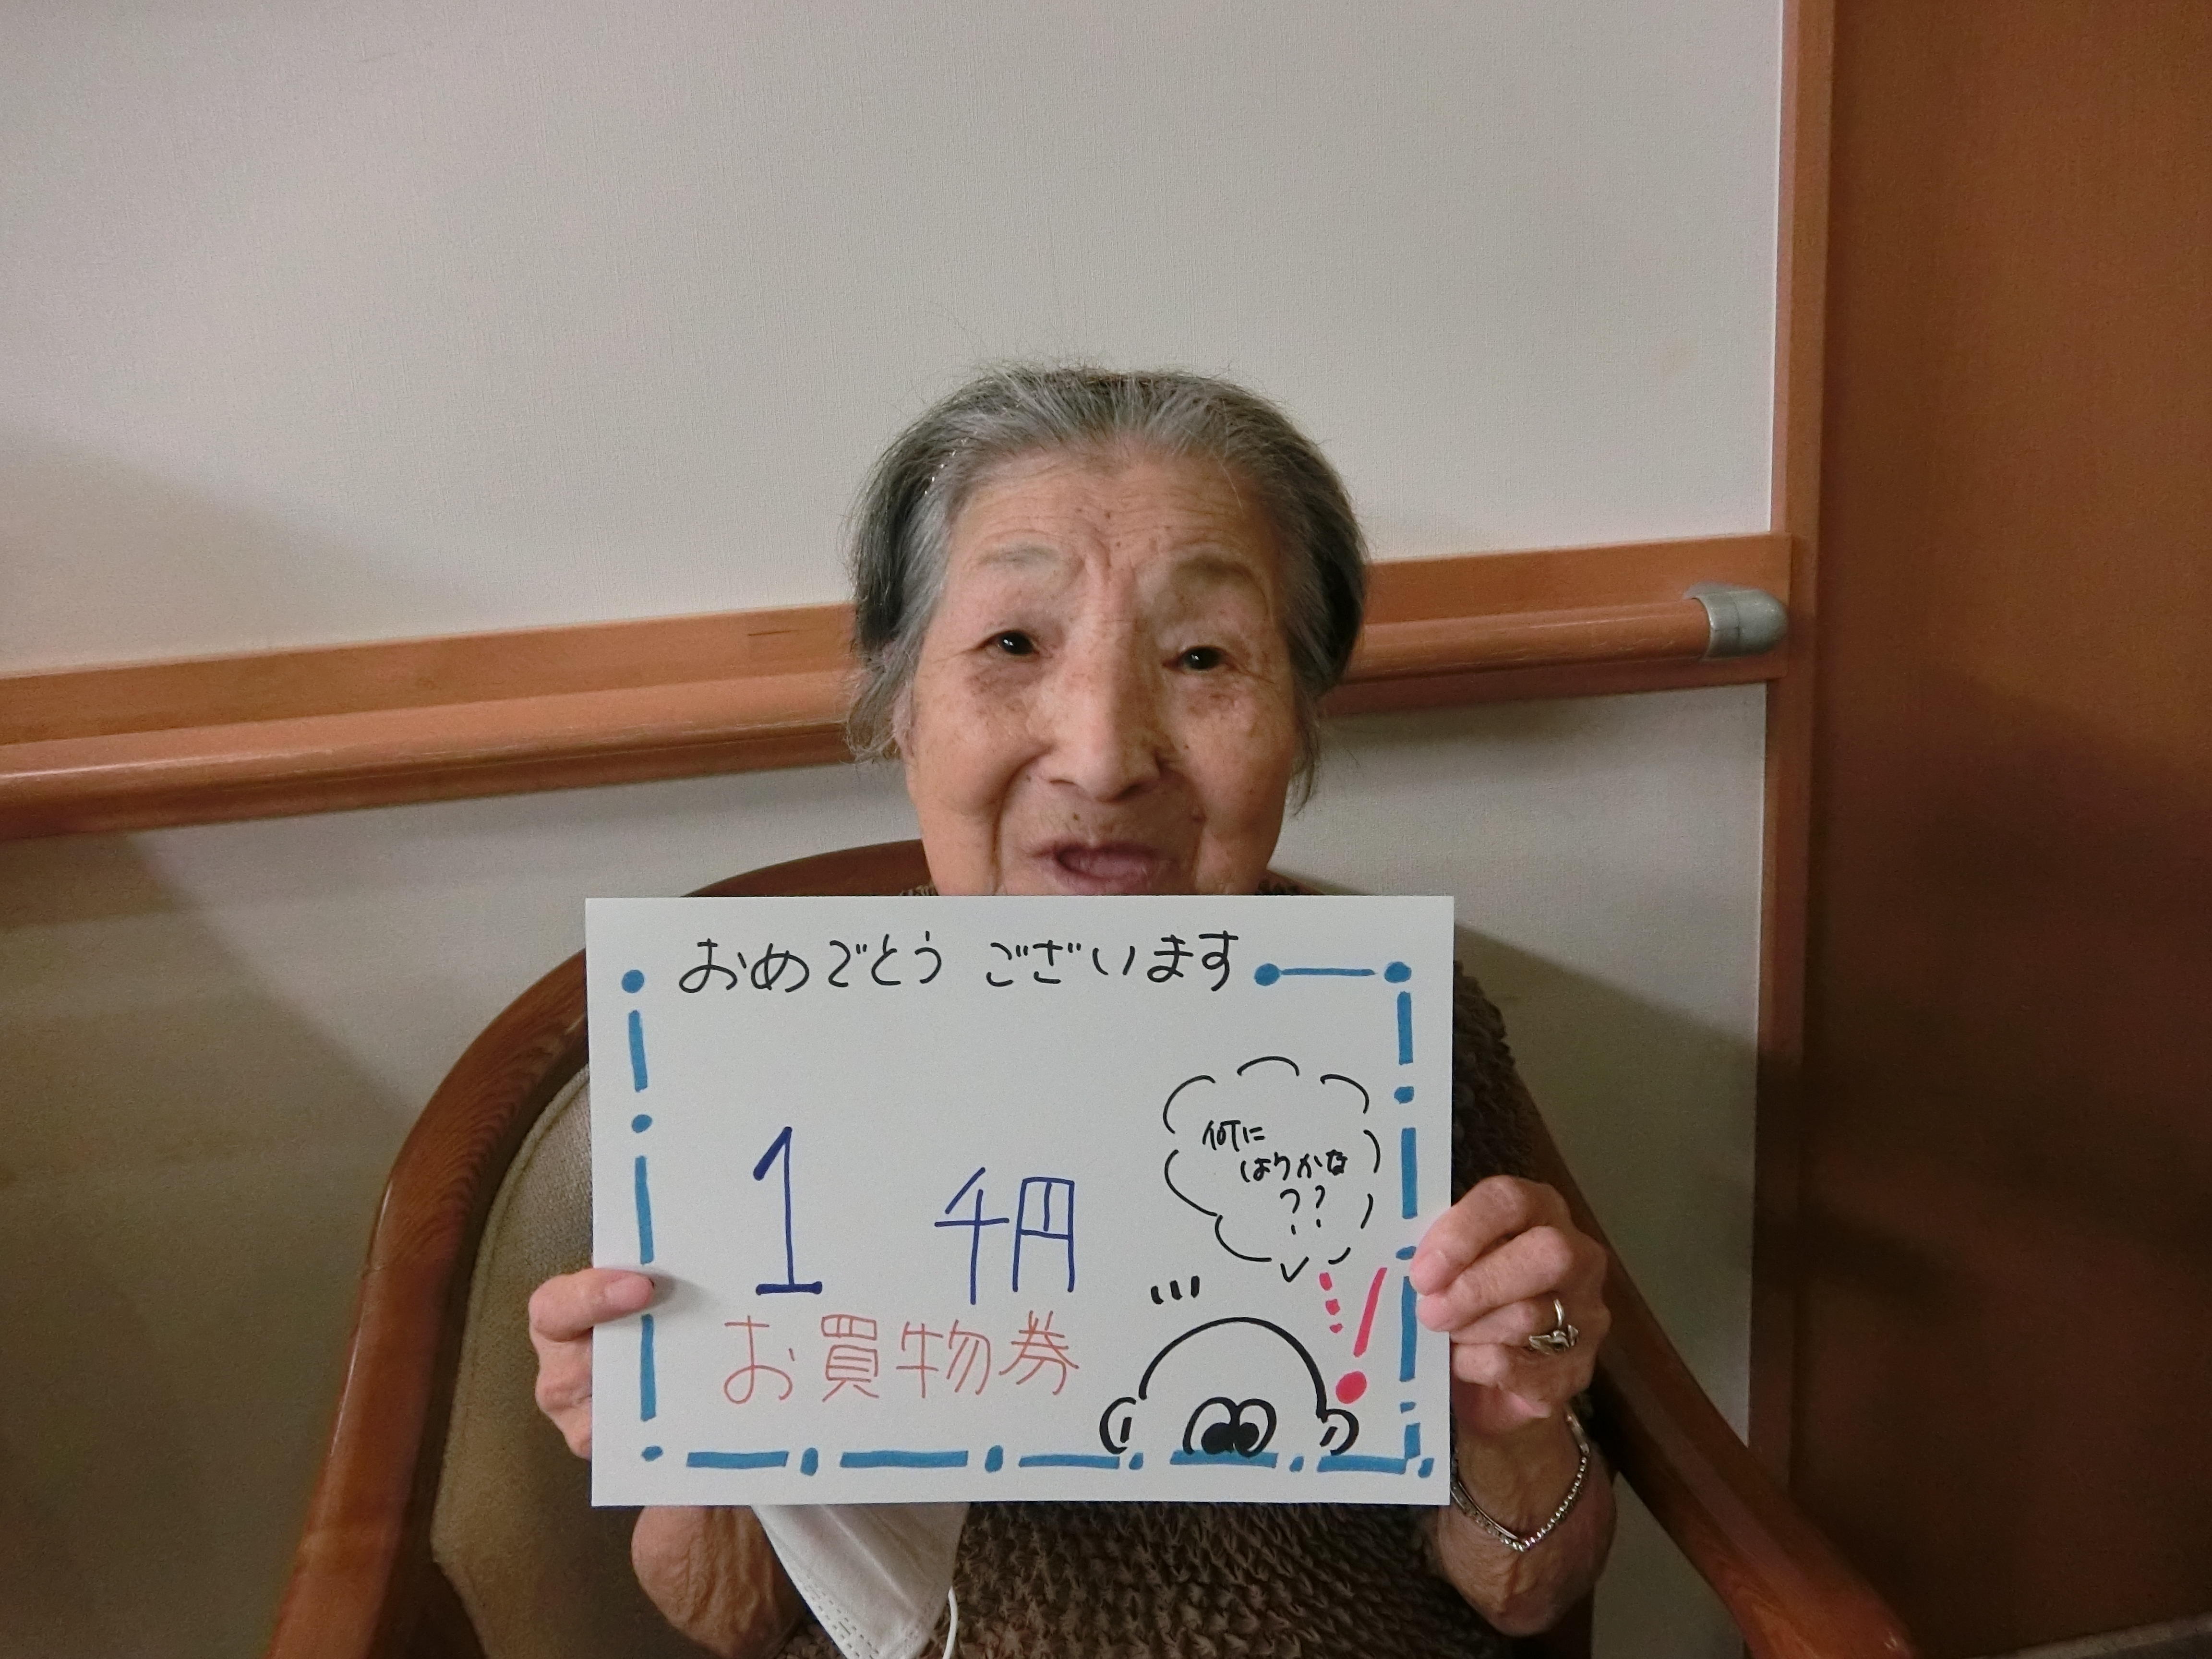 おめでとう ございます
1 千円
お買物券
何に
はりかな
??